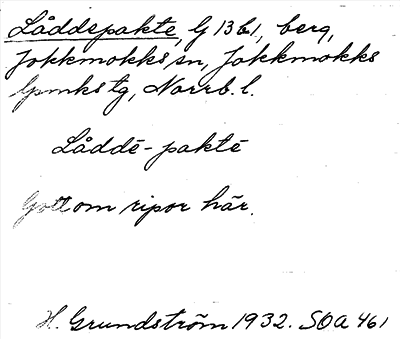 Låddepakte, G 13 b1, berg,
Jokkmokks sn, Jokkmokks
lpmks tg, Norrb. l.
Låddē-paktē
Gott om ripor här.
H. Grundström 1932. SOA 461